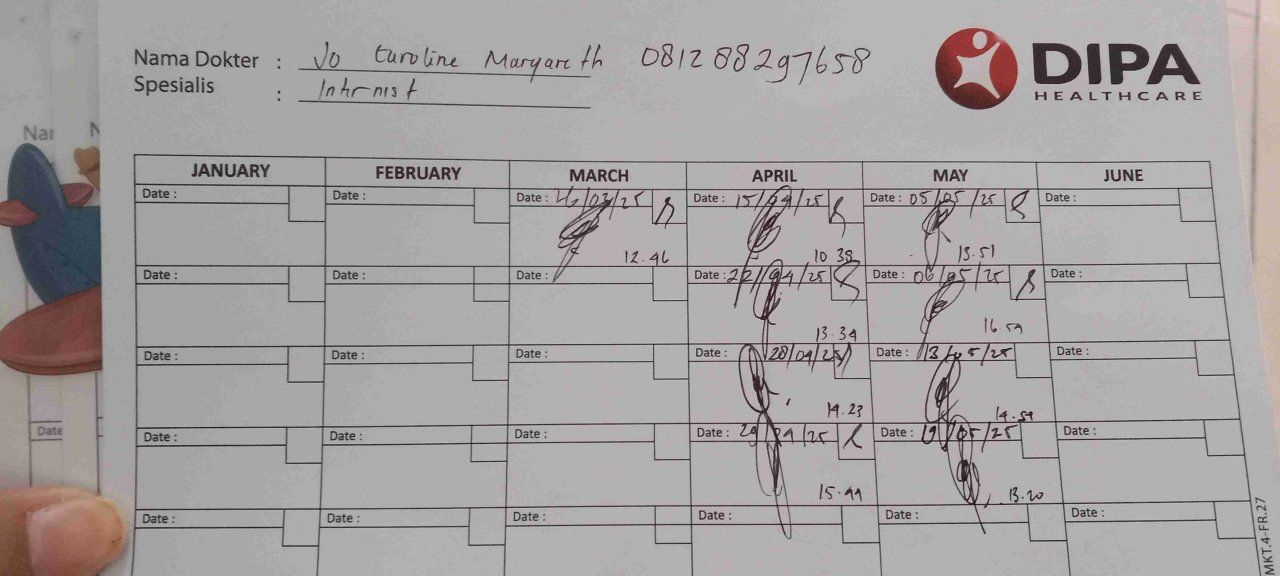 Nama Dokter : Jo Caroline Margareth 081288297658
Spesialis : Internist
DIPA
HEALTHCARE
Nar N
JANUARY FEBRUARY MARCH APRIL MAY JUNE
Date : Date : Date : 26/03/25 Date : 15/04/25 Date : 05/05/25 Date :
12.46 10.38 13.51
Date : Date : Date : Date : 22/04/25 Date : 06/05/25 Date :
13.34 16.59
Date : Date : Date : Date : 28/04/25 Date : 13/05/25 Date :
14.23 14.59
Date
Date : Date : Date : Date : 29/04/25 Date : 19/05/25 Date :
15.44 13.20
Date : Date : Date : Date : Date : Date :
MKT.4-FR.27